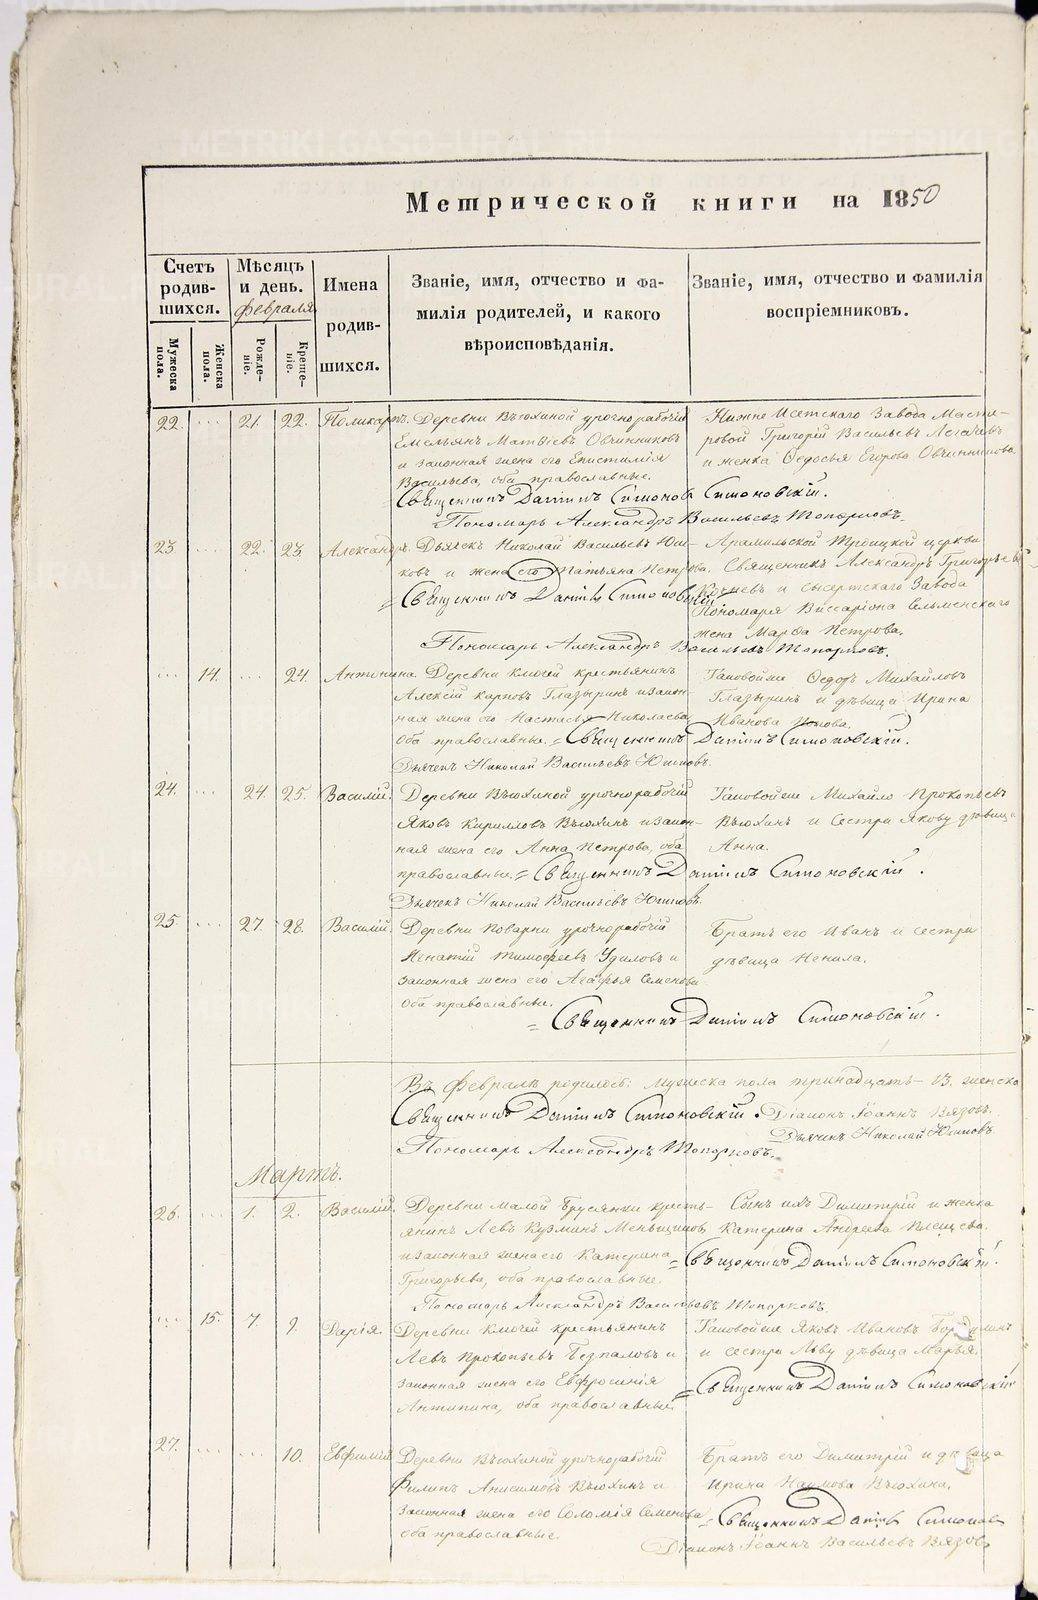 METRIKI.GASO-URAL.RU
Метрической книги на 1850
Счетъ родив-шихся.
Мужеска пола.
Женска пола.
Мѣсяцъ и день.
Февраля
Рожде-ніе.
Креще-ніе.
Имена родив-шихся.
Званіе, имя, отчество и фа-
милія родителей, и какого
вѣроисповѣданія.
Званіе, имя, отчество и фамилія
воспріемниковъ.
22. ... 21. 22. Поликарпъ.
Деревни Вьюхиной урочнорабочій
Емельянъ Матвѣевъ Овчинниковъ
и законная жена его Епистимія
Васильева, оба православные.
Нижне Исетскаго Завода Масте-
ровой Григорій Васильевъ
и женка Ѳедосья Егорова Овчинникова.
Священникъ Даніилъ Симоновскій.
Пономарь Александръ Васильевъ Топорковъ.
23 ... 22. 23 Александръ.
Дьячекъ Николай Васильевъ Юши-
ковъ и жена его Татьяна Петрова.
Арамильской Троицкой церкви
Священникъ Александръ Григорьевъ
и сысертскаго Завода
Пономаря Виссаріона
жена Марѳа Петрова.
Священникъ Даніилъ Симоновскій
Пономарь Александръ Васильевъ Топорковъ.
... 14. ... 24. Антонина.
Деревни Ключей крестьянинъ
Алексій Карповъ Глазыринъ и закон-
ная жена его Настасья Николаева
Оба православные.
Таковой же Ѳедоръ Михайловъ
Глазыринъ и дѣвица Ирина
Иванова Попова.
Священникъ Даніилъ Симоновскій.
Дьячекъ Николай Васильевъ
24. ... 24. 25. Василій.
Деревни Вьюхиной урочнорабочій
Яковъ Кирилловъ Вьюхинъ и закон-
ная жена его Анна Петрова, оба
православные.
Таковой же Михайло Прокопьевъ
Вьюхинъ и сестра Якову дѣвица
Анна.
Священникъ Даніилъ Симоновскій.
Дьячекъ Николай Васильевъ
25. ... 27. 28. Василій.
Деревни Поварни урочнорабочій
Игнатій Тимофеевъ Удиловъ и
законная жена его Агафья Семенова
Оба православные.
Братъ его Иванъ и сестра
дѣвица Ненила.
Священникъ Даніилъ Симоновскій.
Въ Февралѣ родилось: Мужеска пола тринадцать – 13. женска
Священникъ Даніилъ Симоновскій. Діаконъ Іоаннъ Вязовъ.
Дьячекъ Николай
Пономарь Александръ Топорковъ.
Мартъ.
26. ... 1. 2. Василій.
Деревни малой Брусянки кресть-
янинъ Левъ Кузминъ Меньщиковъ
и законная жена его Катерина
Григорьева, оба православные.
Сынъ ихъ Димитрій и женка
Катерина Андреева Плещева.
Священникъ Даніилъ Симоновскій.
Пономарь Александръ Васильевъ Топорковъ.
... 15. 7. 9. Дарія.
Деревни Ключей крестьянинъ
Левъ Прокопьевъ Безпаловъ и
законная жена его Евфросинія
Антипина, оба православные.
Таковой же Яковъ Ивановъ
и сестра Льву дѣвица Марья.
Священникъ Даніилъ Симоновскій
27. ... ... 10. Евфимій
Деревни Вьюхиной урочнорабочій
Филипъ Анисимовъ Вьюхинъ и
законная жена его Соломія Семенова
оба православные.
Братъ его Димитрій и дѣвица
Ирина Наумова Вьюхина.
Священникъ Даніилъ
Діаконъ Іоаннъ Васильевъ Вязовъ